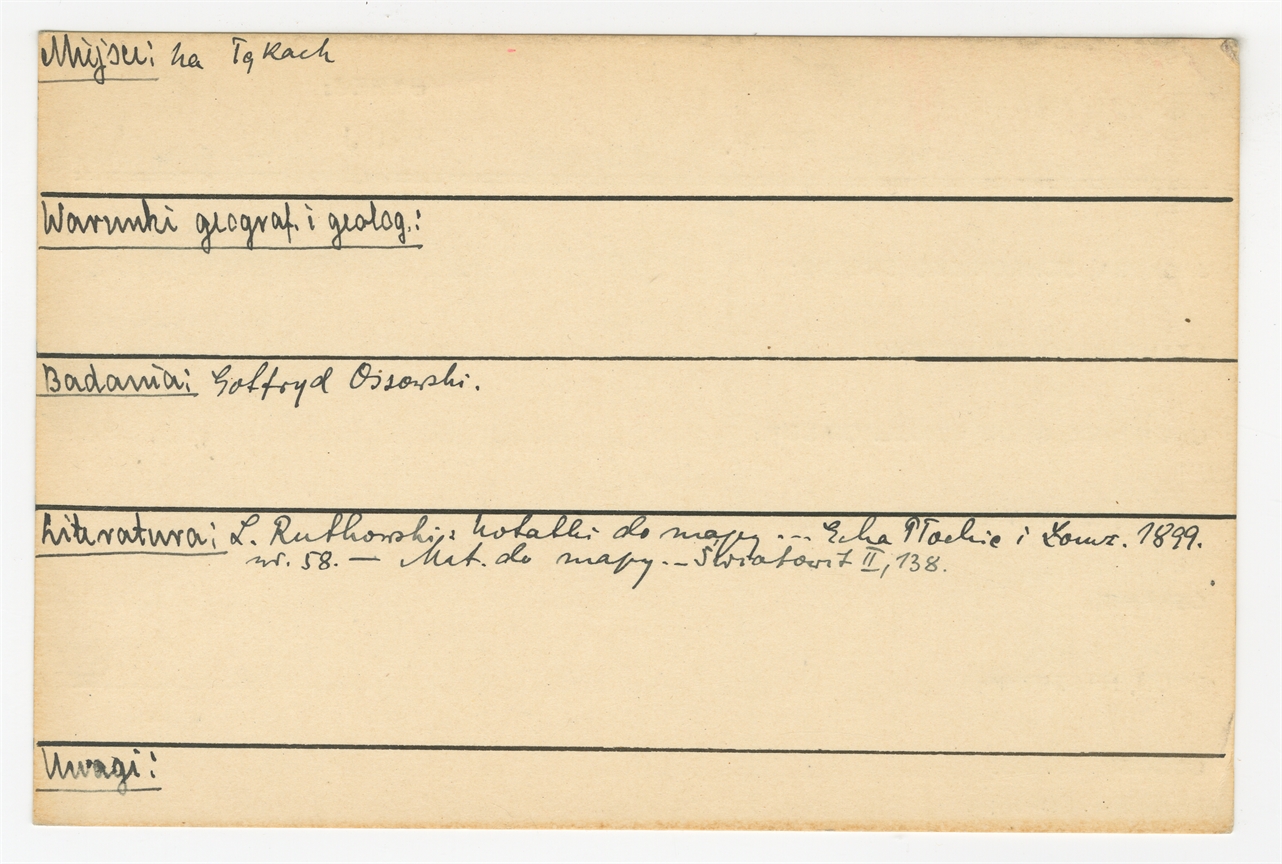 Miejsce: na łąkach
Warunki geograf. i geolog.:
Badania: Gotfryd Ossowski.
Literatura: L. Rutkowski: Notatki do mapy ... Echa Płockie i Łomż. 1899.
nr. 58. — Mat. do mapy. – Światowit II, 138.
Uwagi: